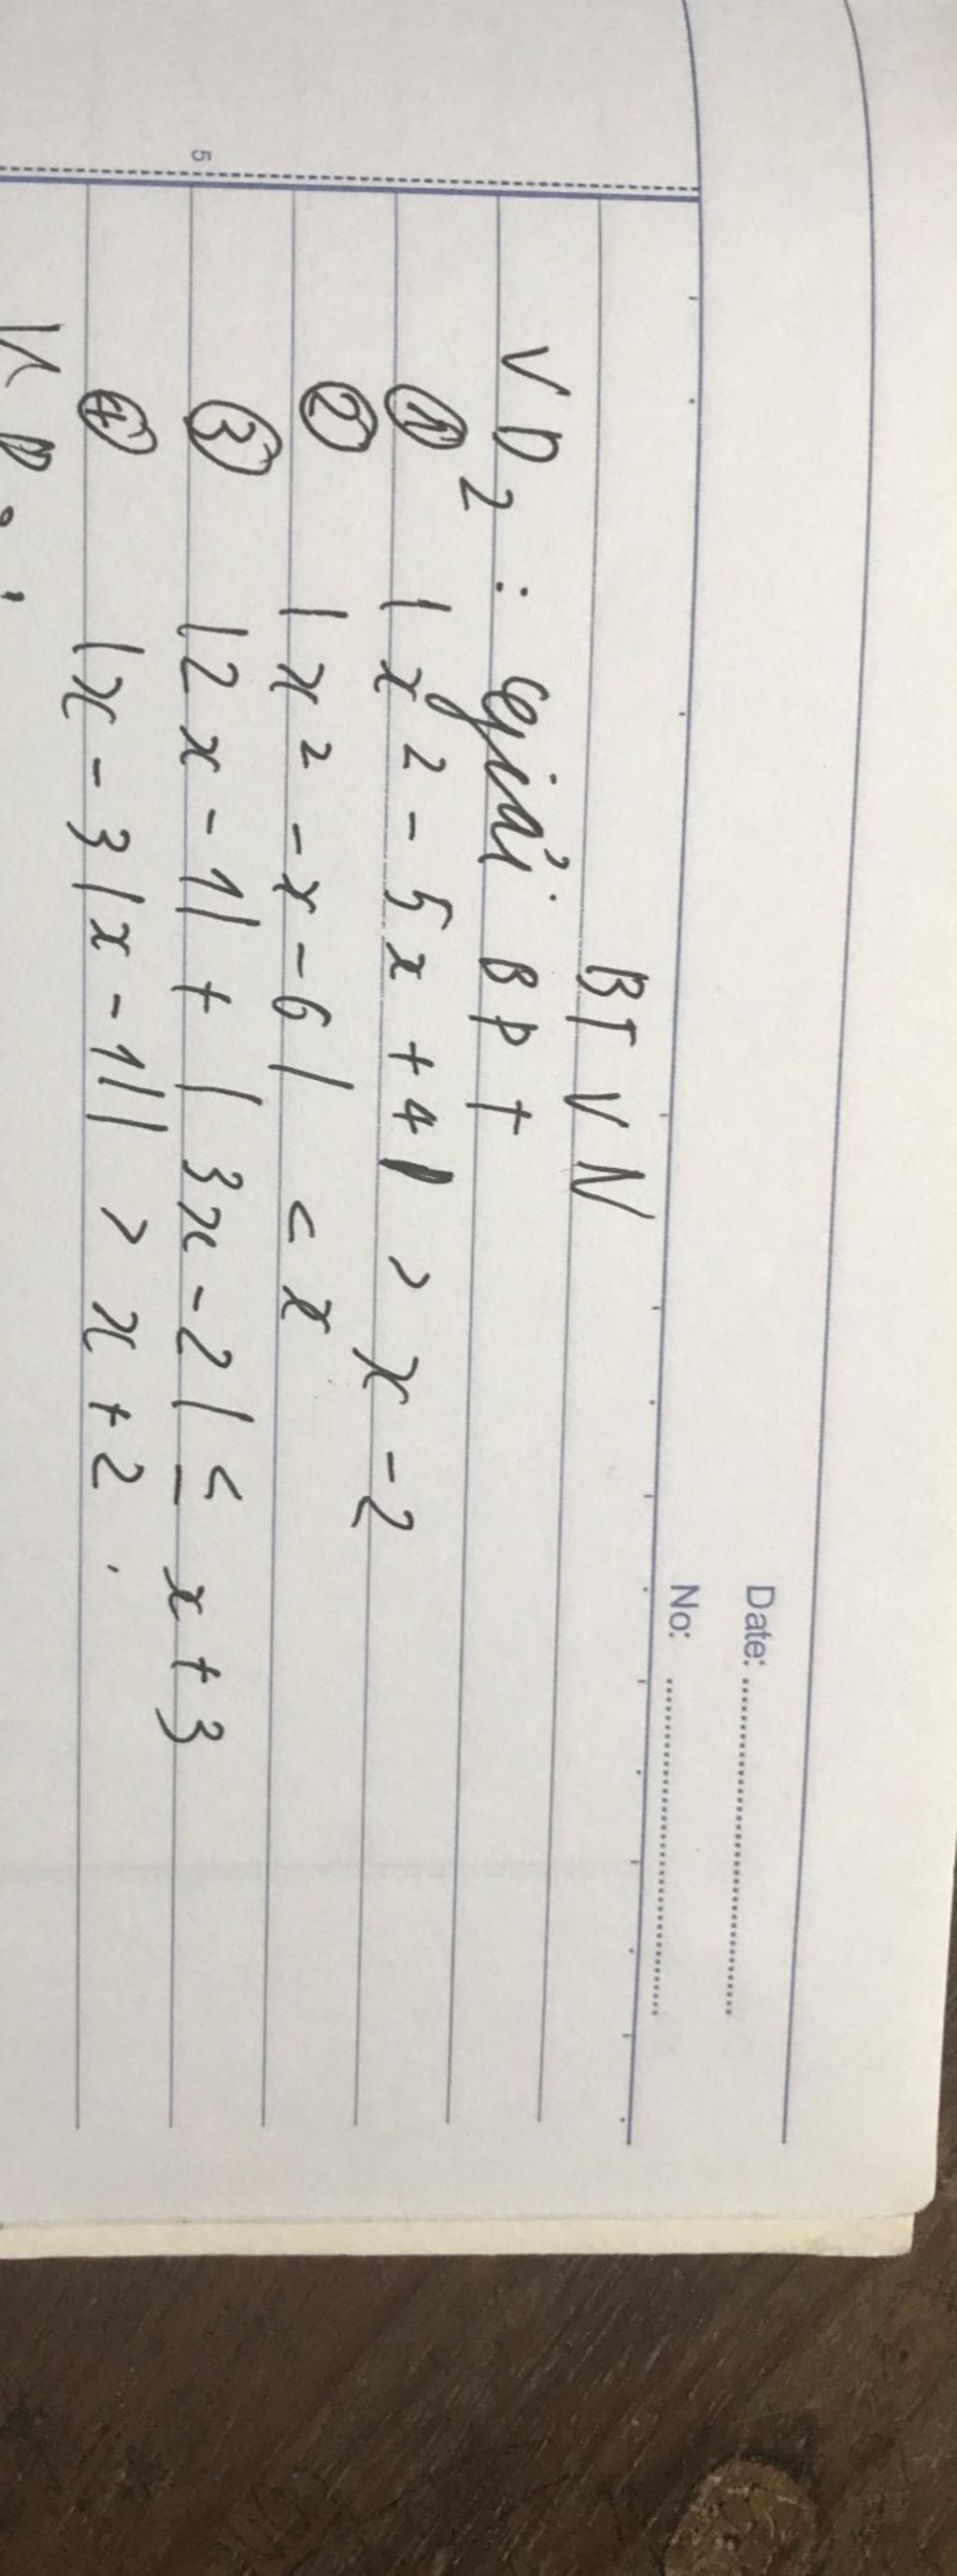 Date:
No:
BTVN
VD2: Giải BPT
① |x² - 5x + 4| > x - 2
② |x² - x - 6| < x
5
③ |2x - 1| + |3x - 2| ≤ x + 3
④ |x - 3|x - 1|| > x + 2.